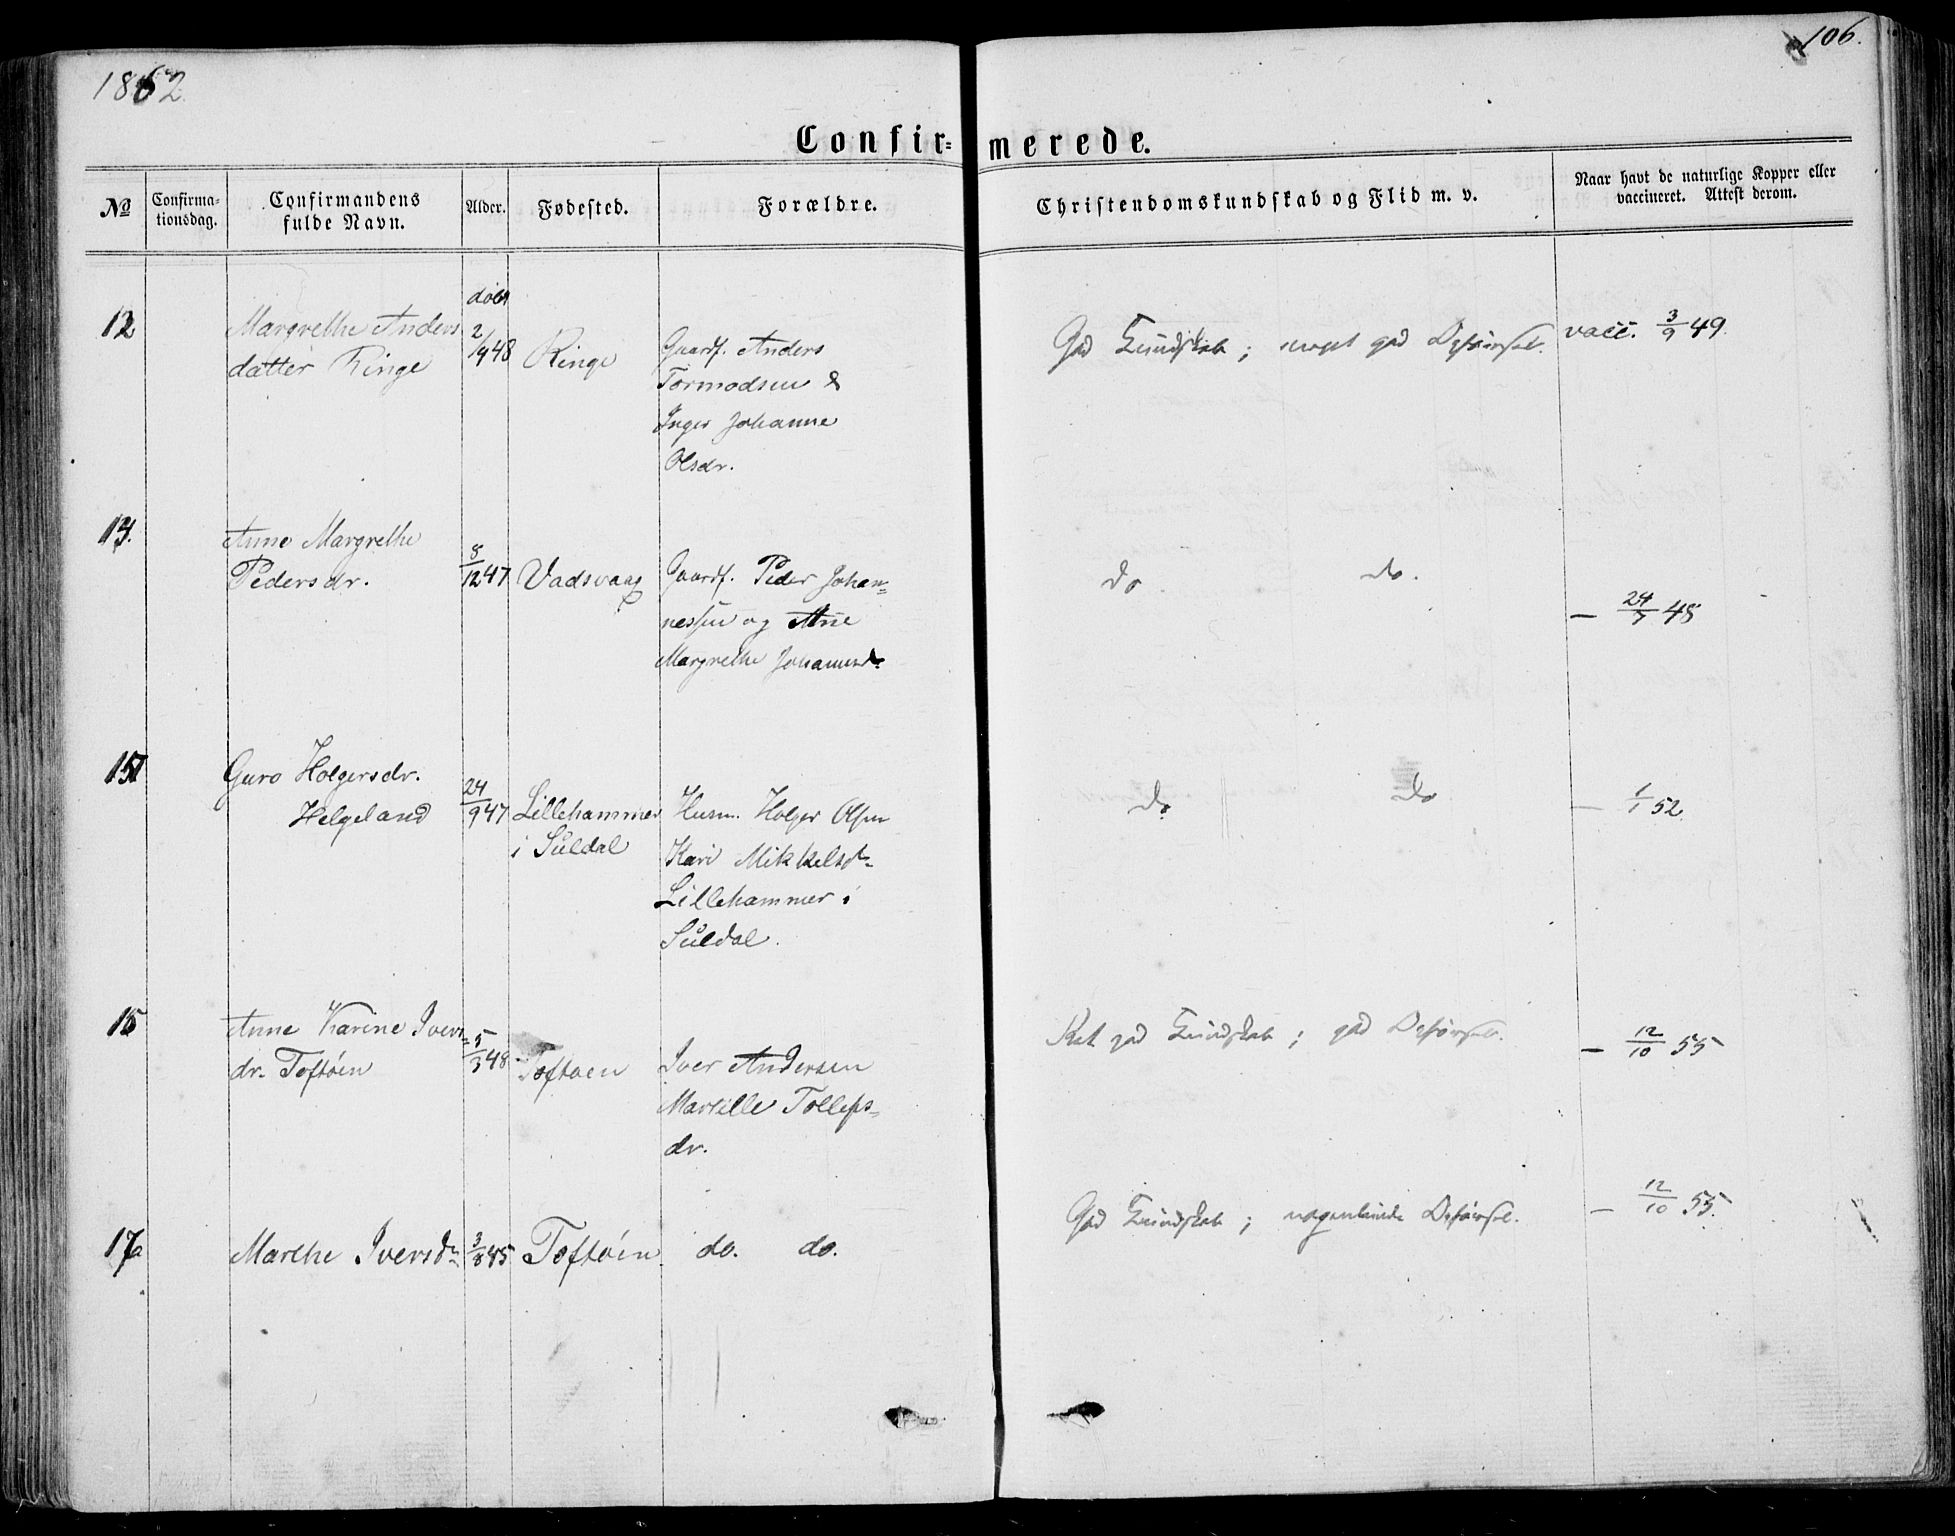 1862.
106.
Confir= merede.
No
Confirma-
tionsdag.
Confirmandens
fulde Navn.
Alder.
Fødested.
Forældre.
Christendomskundskab og Flid m. v.
Naar havt de naturlige Kopper eller
vaccineret. Attest derom.
12
Margrethe Anders
datter Ringe
døbt
2/9 48
Ringe
Gaardf. Anders
Tormodsen &
Inger Johanne
Olsdr.
God Kundskab; meget god Opførsel.
vacc. 3/9 49.
Anne Margrethe
Pedersdr.
8/12 47
Vadsvaag
Gaardf. Peder Johan=
nessen og Ane
Margrethe Johannesdr
do
do.
— 24/5 48
Guro Holgersdr.
Helgeland
24/9 47
Lillehammer
i Suldal
Husm. Holger Olsen
Kari Mikkelsdr
Lillehammer i
Suldal.
do
do
— 1/1 52
Anne Karine Ivers=
dr. Toftøen
5/3 48
Toftøen
Iver Andersen
Martille Tollefs=
dr.
Ret god Kundskab; god Opførsel.
— 12/10 55
17
Marthe Iversdr
3/8 45
Toftøen
do. do.
God Kundskab; nogenlunde Opførsel.
— 12/10 55.